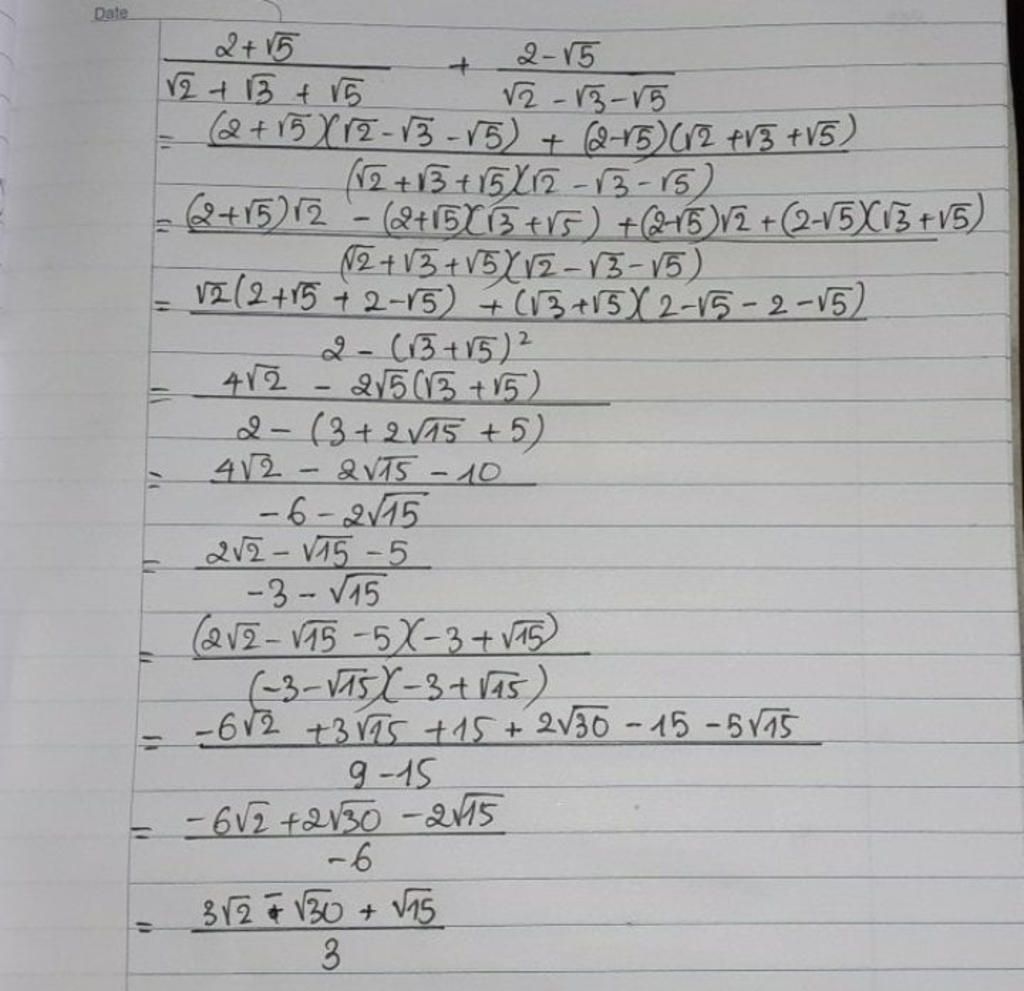 Date
2+√5 / √2 + √3 + √5 + 2-√5 / √2 - √3 - √5
= (2+√5)(√2-√3-√5) + (2-√5)(√2+√3+√5) / (√2+√3+√5)(√2-√3-√5)
= (2+√5)√2 - (2+√5)(√3+√5) + (2-√5)√2 + (2-√5)(√3+√5) / (√2+√3+√5)(√2-√3-√5)
= √2(2+√5+2-√5) + (√3+√5)(2-√5-2-√5) / 2-(√3+√5)²
= 4√2 - 2√5(√3+√5) / 2-(3+2√15+5)
= 4√2 - 2√15 - 10 / -6-2√15
= 2√2 - √15 - 5 / -3-√15
= (2√2-√15-5)(-3+√15) / (-3-√15)(-3+√15)
= -6√2 + 3√15 + 15 + 2√30 - 15 - 5√15 / 9-15
= -6√2 + 2√30 - 2√15 / -6
= 3√2 - √30 + √15 / 3